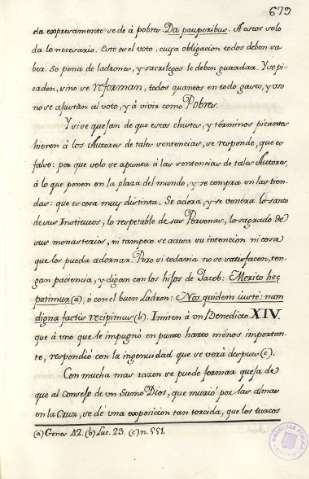 679
cia expresamente se dé a pobres Da pauperibus. A estos solo
da lo necesario. Este es el voto, cuya obligacion todos deben sa-
ber. So pena de ladrones, y sacrilegos lo deben guardar. Y os pi-
carden, sino se reforman, todos quantos en todo gasto, y uso
no se ajustan al voto, y à vivir como Pobres.
Y si se quejan de que estos chistes, y terminos picantes
hieren à los Autores de tales sentencias, se responde, que es
falso: por que solo se apunta à las sentencias de tales Autores,
à lo que ponen en la plaza del mundo, y se compra en las tien-
das: que es cosa muy distinta. Se adora, y se venera lo santo
de sus Institutos, lo respetable de sus Personas, lo sagrado de
sus monasterios, ni tampoco se acusa su intencion ni cosa
que los pueda adornar. Pero si todavia no se satisfacen, ten-
gan paciencia, y digan con los hijos de Jacob: Merito hec
patimur (a), ò con el buen Ladron: Nos quidem iuste: nam
digna factis recipimus (b). Imiten à un Benedicto XIV.
que à uno que le impugnó en punto harto menos importan-
te, respondió con la ingenuidad que se verá despues (c).
Con mucha mas razon se puede formar queja de
que al consejo de un Sumo Dios, que murió por las almas
en la Cruz, se dé una exposicion tan torcida, que los turcos
(a) Genes. 42. (b) Luc. 23. (c) n. 551.